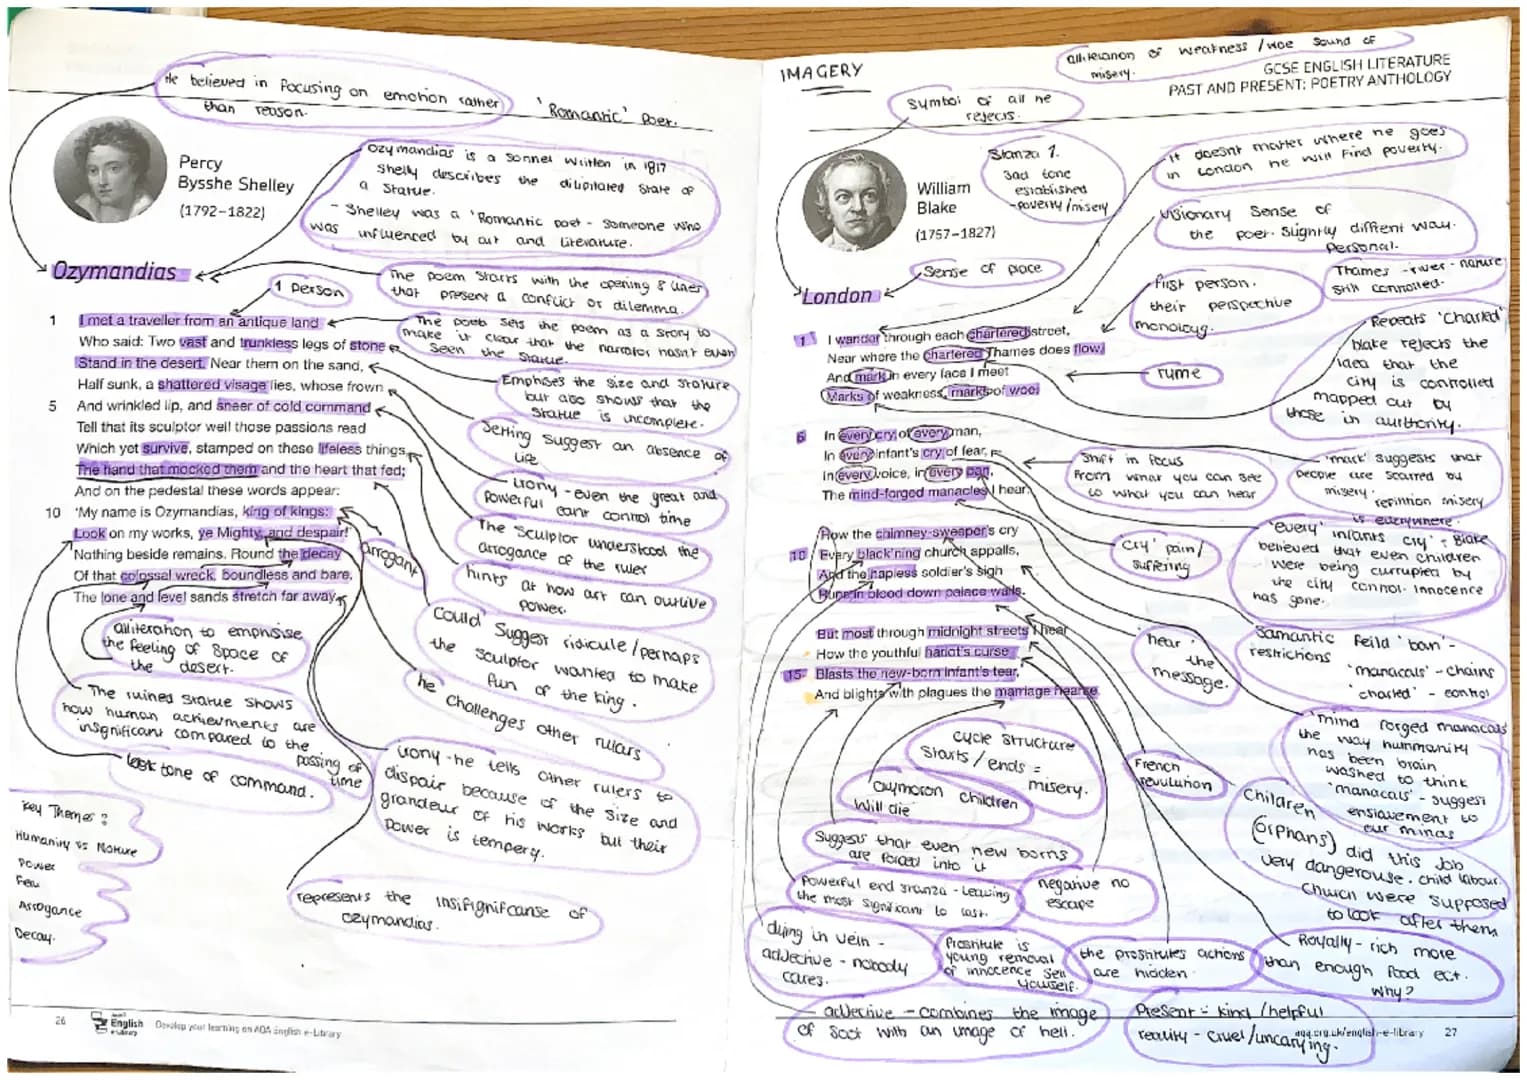 He believed in focusing on emotion rather
than reason.
'Romantic' Poet.
Percy
Bysshe Shelley
(1792–1822)
Ozymandias is a sonnet written in 1817
Shelly describes the dilipitated state of
a statue.
- Shelley was a 'Romantic poet - someone who
was influenced by art and literature.
Ozymandias
1 person
The poem starts with the opening 8 lines
that present a conflict or dilemma.
The poets sets the poem as a story to
make it clear that the narrator hasn't even
seen the statue.
1 I met a traveller from an antique land
Who said: Two vast and trunkless legs of stone
Stand in the desert. Near them on the sand,
Half sunk, a shattered visage lies, whose frown
5 And wrinkled lip, and sneer of cold command
Tell that its sculptor well those passions read
Which yet survive, stamped on these lifeless things,
The hand that mocked them and the heart that fed;
And on the pedestal these words appear:
10 'My name is Ozymandias, king of kings:
Look on my works, ye Mighty, and despair!'
Nothing beside remains. Round the decay
Of that colossal wreck, boundless and bare,
The lone and level sands stretch far away.
Emphises the size and stature
but also shows that the
statue is incomplete.
Setting suggest an absence of
life
irony - even the great and
powerful cant control time
The sculptor understood the
arrogance of the ruler
hints at how art can outlive
power.
arrogant
Could suggest ridicule/perhaps
the sculptor wanted to make
fun of the king.
he challenges other rulars
alliteration to emphisise
the feeling of space of
the desert.
The ruined statue shows
how human achievments are
insignificant compared to the
passing of
time
last tone of command.
irony - he tells other rulers to
dispair because of the size and
grandeur of his works but their
power is tempery.
represents the insifignificanse of
ozymandias.
Key Themes:
Humanity vs Nature
Power
Arrogance
Decay.
26
English
e-Library
Develop your learning on AQA English e-Library
IMAGERY
alliteration of weakness/woe sound of
misery.
GCSE ENGLISH LITERATURE
PAST AND PRESENT: POETRY ANTHOLOGY
Symbol of all he
rejects.
William
Blake
(1757–1827)
Stanza 1.
sad tone
established
- poverty/misery
it doesnt matter where he goes
in London he will find poverty.
Visionary sense of
the poet. Slightly diffrent way.
Personal.
Sense of place
London
first person.
their perspective
monolog.
Thames - river - nature
still controlled.
Repeats 'charted'
blake rejects the
idea that the
city is controlled
mapped out by
those in authority.
ryme
1 I wander through each chartered street,
Near where the chartered Thames does flow,
And mark in every face I meet
Marks of weakness, marks of woe.
5 In every cry of every man,
In every infant's cry of fear,
In every voice, in every ban,
The mind-forged manacles I hear:
How the chimney-sweeper's cry
10 Every black'ning church appalls,
And the hapless soldier's sigh
Runs in blood down palace walls.
But most through midnight streets I hear
How the youthful harlot's curse
15 Blasts the new-born infant's tear,
And blights with plagues the marriage hearse.
Shift in focus
from what you can see
to what you can hear
'mark' suggests that
people are scarred by
misery. repition misery
is everywhere.
'cry' pain/
suffering
'every' infants cry': Blake
believed that even children
were being currupted by
the city control. innocence
has gone.
'hear'
the
message.
Samantic feild 'ban' -
restrictions
'manacals' - chains
'charted' - control
'mind forged manacals'
the way hummanity
has been brain
washed to think
'manacals' - suggest
enslavement to
our minds
Cycle structure
starts/ends =
misery.
oxymoron children
will die
French
revulution
Children
(orphans) did this job
very dangerouse. child labour.
Church were supposed
to look after them
Suggests that even new borns
are forced into it
Powerful end stanza - leaving
the most significant to last.
negative no
escape
dying in vein -
adjective - nobody
cares.
Prostitute is
young removal
of innocence sell
yourself.
the prostitutes actions
are hidden
Royally - rich more
than enough food ect.
Why?
adjective - combines the image
of soot with an image of hell.
Present = kind/helpful
reality - cruel/uncarying.
aqa.org.uk/english-e-library 27